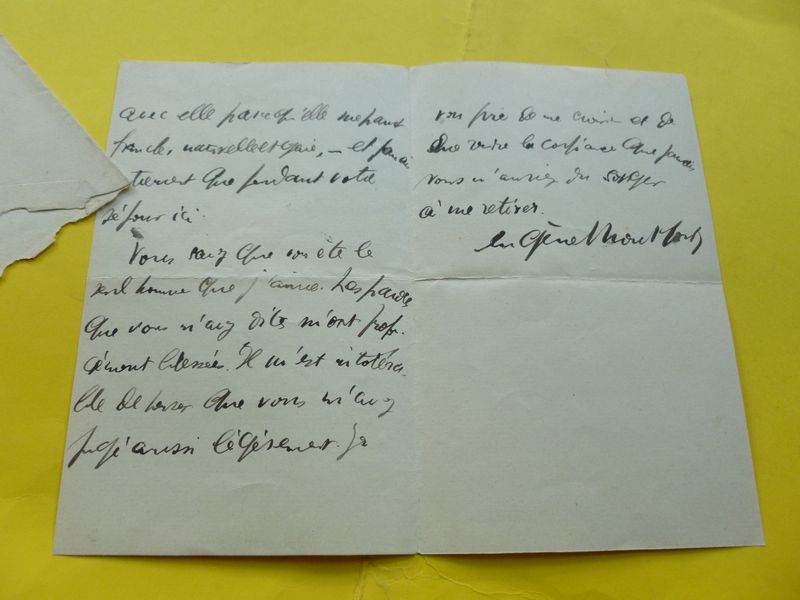 avec elle parce qu'elle me parait
franche, naturelle et gaie, — et
que pendant votre
séjour ici.
Vous savez que vous êtes le
seul homme que j'aime. Les paroles
que vous m'avez dites m'ont profon-
dément blessée. Il m'est intoléra-
ble de penser que vous m'avez
jugé aussi légèrement. Je
vous prie de me croire et de
me rendre la confiance que jamais
vous n'auriez du songer
à me retirer.
Eugène Montfort